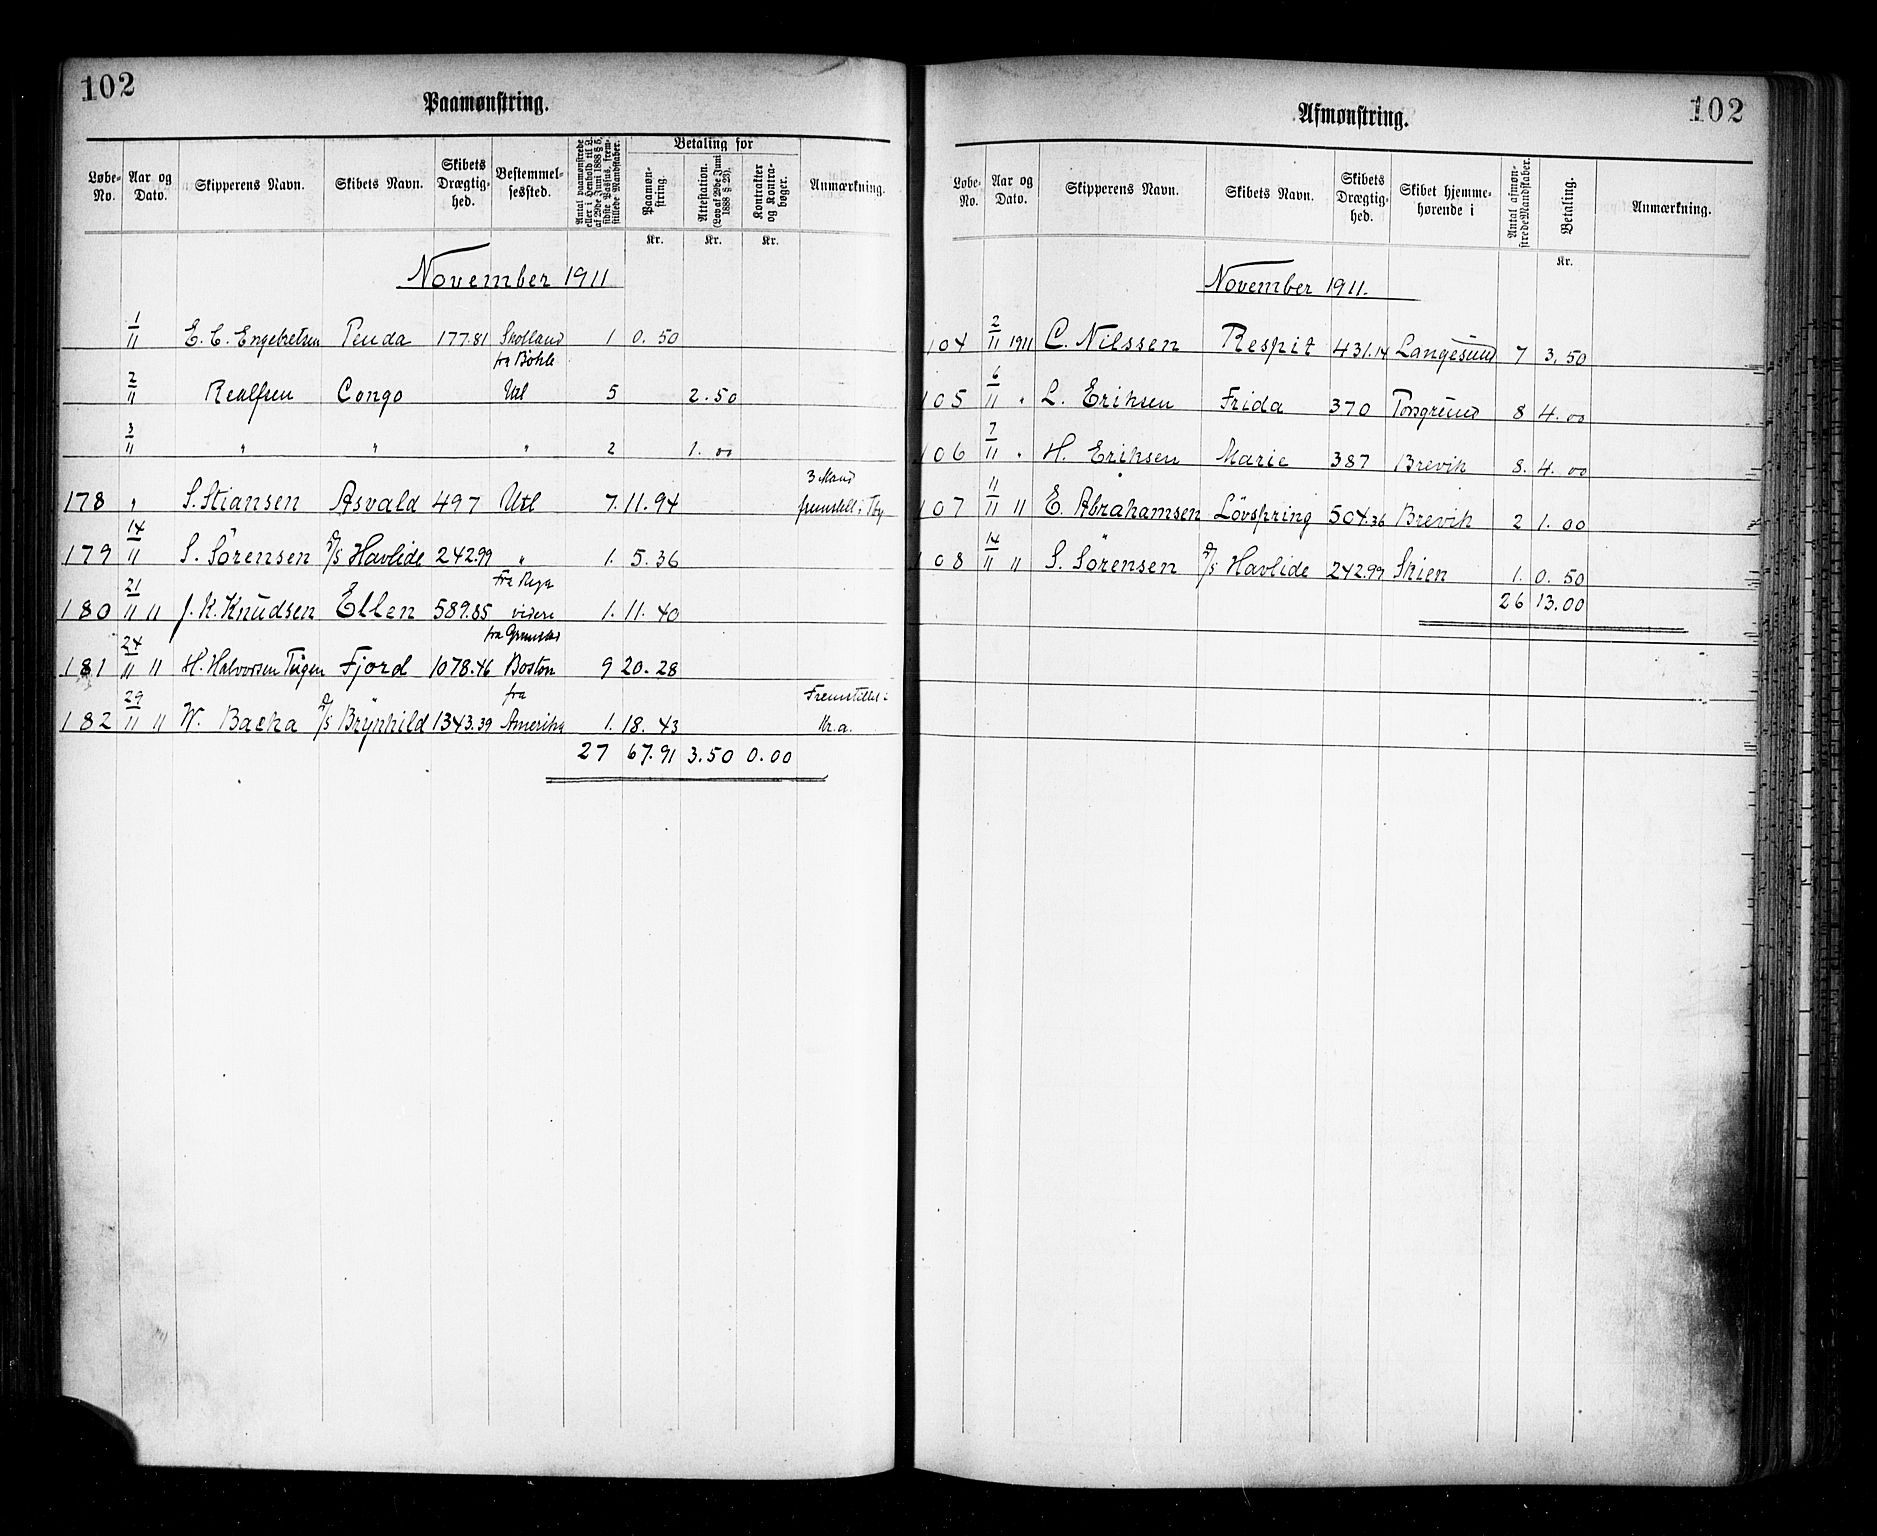 102
Paamønstring.
Løbe-No. Aar og Dato. Skipperens Navn. Skibets Navn. Skibets Drægtig-hed. Bestemmel-sessted. Antal paamønstrede eller i Henhold til L. af 29de Juni 1888 § 5, sidste Passus, frem-stillede Mandskaber. Betaling for Paamøn-string. Attestation. (Lov af 29de Juni 1888 § 23). Kontrakter og Kontra-bøger. Anmærkning.
Kr. Kr. Kr.
November 1911
1/11 E. C. Engebretsen Penda 177.81 Skotland 1 0.50
fra Böhle
2/11 Realfsen Congo Utl 5 2.50
3/11 " " " 2 1.00
3 Mand
178 " S. Stiansen Asvald 497 Utl 7. 11.94 fremstill i
179 14/11 S. Sörensen D/S Havlide 242.99 " 1. 5.36
Fra
180 21/11 " J. K. Knudsen Ellen 589.85 videre 1. 11.40
fra
181 24/11 " H. Halvorsen Fjord 1078.46 Boston 9 20.28
fra Fremstillet i
182 29/11 " W. Backa D/S Brynhild 1343.39 Amerika 1. 18.43 Kr.a.
27 67.91 3.50 0.00
102
Afmønstring.
Løbe-No. Aar og Dato. Skipperens Navn. Skibets Navn. Skibets Drægtig-hed. Skibet hjemme-hørende i Antal afmøn-strede Mandskaber. Betaling. Anmærkning.
Kr.
November 1911.
104 2/11 1911 C. Nilssen Respit 431.14 Langesund 7 3.50
105 6/11 " L. Eriksen Frida 370 Porsgrund 8 4.00
106 7/11 " H. Eriksen Marie 387 Brevik 8. 4.00
107 11/11 " E. Abrahamsen Lövspring 504.36 Brevik 2 1.00
108 14/11 " S. Sörensen D/S Havlide 242.99 Skien 1. 0.50
26 13.00